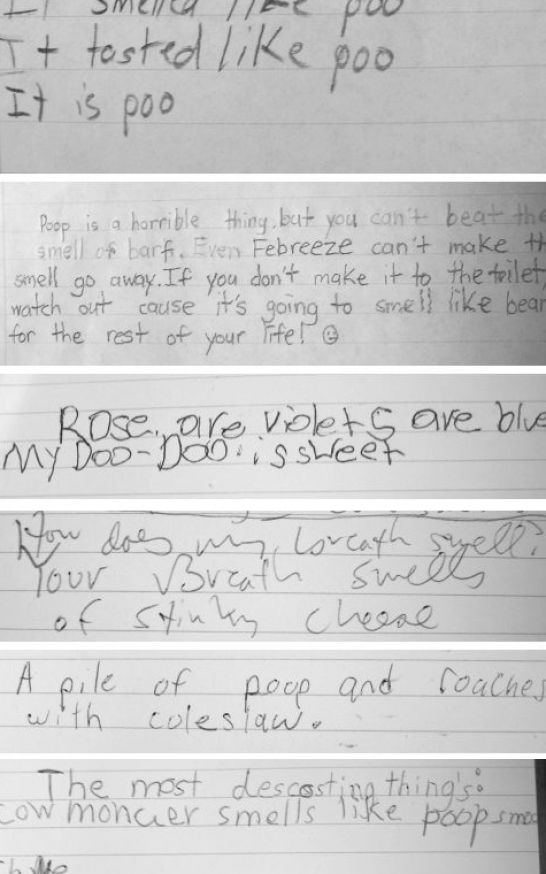 It smelled like poo
It tasted like poo
It is poo
Poop is a horrible thing, but you can't beat the
smell of barf. Even Febreeze can't make th
smell go away. If you don't make it to the toilet,
watch out cause it's going to smell like bear
for the rest of your life! ☺
Rose. are violets are blue
My Doo-Doo is sweet
How does my breath smell?
Your Breath smells
of stinky cheese
A pile of poop and roaches
with coleslaw.
The most descosting thing's:
cow moncuer smells like poop smo